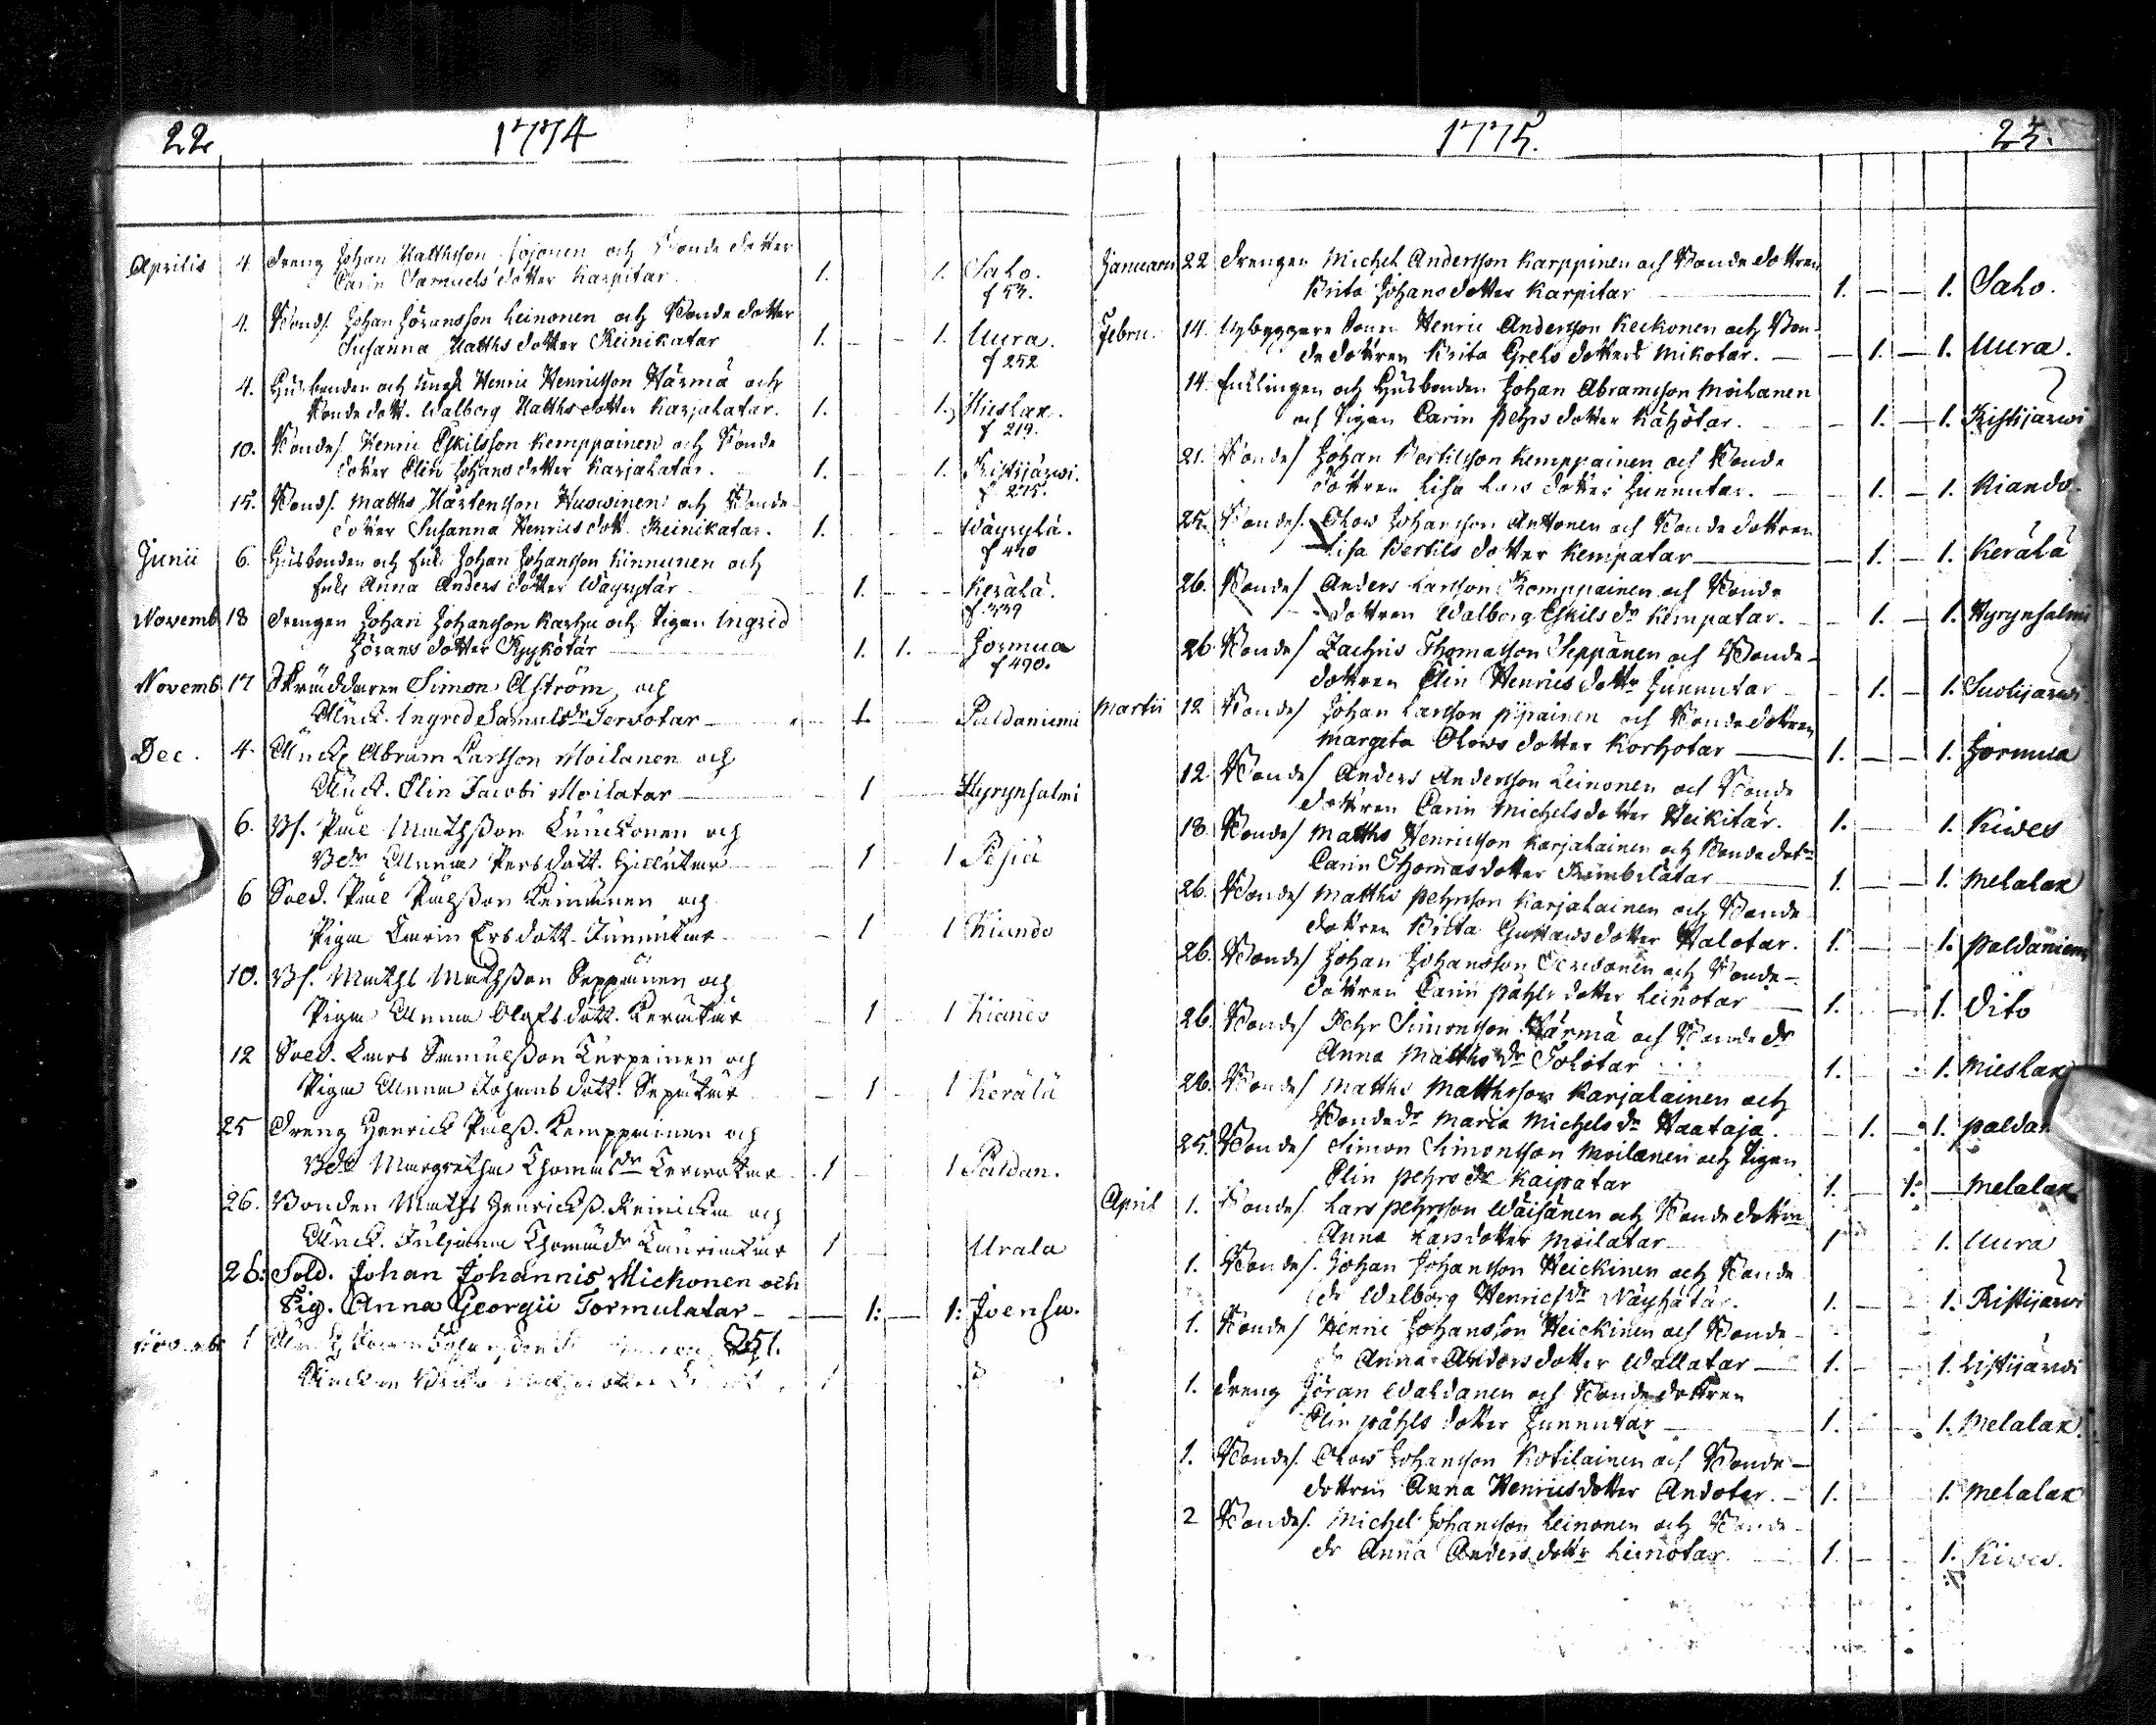 22 1774
Aprilis 4. Dreng Johan Matthsson och Bonde dotter
Carin Samuels dotter Karpitar 1. 1. Salo.
f 53.
4. Bondes. Johan Jöransson Leinonen och Bonde dotter
Susanna Matths dotter Keinikatar 1. – – 1. Uura.
f 252
4. Husbonden och Henric Henricsson Härmä och
Bonde dott. Walborg Matths dotter Karjalatar. 1. 1. Mieslax.
f 219.
10. Bondes. Henric Eskilsson Kemppainen och Bonde
dotter Elin Johans dotter Karjalatar. 1. 1. Ristijärwi.
f 275.
15. Bonds. Matths Mårtensson Huowinen och Bonde
dotter Susanna Henrics dott. Keinikatar. 1. Wäyrylä.
f 410
Junii 6. Husbonden och Enkl. Johan Johansson Kinnunen och
Enk. Anna Anders dotter Wäyrytär 1. Kerälä.
f. 339
Novemb. 18 Drengen Johan Johansson Karhu och Pigan Ingrid
Jörans dotter Kyykötär 1. 1. Jormua
f 490.
Novemb. 17 Skräddaren Simon Åström, och
Änck. Ingred Samuls dr Servotar 1. Paldaniemi
Dec. 4. Änckl. Abram Larsson Moilanen och
Änck. Elin Jacobi Moilatar 1 Hyrynsalmi
6. Bs. Påhl Mathsson Lunckonen och
Bdr Anna Persdott. Hillutar 1 1 Pesiö
6 Sold. Påhl Pålsson Keinänen och
Pigan Carin Ersdott. Junnutar 1 1 Kiando
10. Bs. Maths Mathsson Seppänen och
Pigan Anna Olofsdott. Keränär 1 1 Kianes
12 Sold. Lars Samulsson Karpeinen och
Pigan Anna Johansdott. Sepätär 1 1 Kerälä
25 Dreng Henrick Pålss. Kemppainen och
Bdr Margretha Thomas dr Terwatar 1 1 Paldan.
26. Bonden Maths Henrickss. Keinicka och
Änck. Juliana Thomædr Lauriatar 1 Urala
26. Sold. Johan Johannis Mickonen och
Pig. Anna Georgii Tormulatar 1: 1: Joensu.
Novemb. 1 251.
1

1775. 23.
Januarii 22 Drengen Michel Andersson Karppinen och Bonde dottren
Brita Johans dotter Karpitar 1. – – 1. Salo.
Febru. 14. Nybyggare Sonen Henric Andersson Keckonen och Bon-
de dottren Brita Grels dotter Mikotar. – 1. – 1. Uura.
14. Enklingen och Husbonden Johan Abramsson Moilanen
och Pigan Carin Pehrs dotter Kähötar. 1. – 1. Ristijärwi
21. Bondes Johan Bertilsson Kemppainen och Bonde
dottren Lisa Lars dotter Junnutar. – 1. – 1. Kiando.
25. Bondes. Olow Johansson Anttonen och Bonde dottren
Lisa Bertils dotter Kempatar – 1. – 1. Kerälä
26. Bondes Anders Larsson Kemppainen och Bonde
dottren Walborg Eskils dr Kempatar. 1. – 1. Hyrynsalmi
26. Bondes Zachris Thomasson Seppänen och Bonde-
dottren Elin Henrics dottr Junnutar – 1. – 1. Suolijärwi
Martii 12 Bondes Johan Larsson Pipainen och Bonde dottren
Margeta Olows dotter Korhotar 1. – – 1. Jormua
12. Bondes Anders Andersson Leinonen och Bonde
dottren Carin Michelsdotter Heikitär. 1. – 1. Kiwes
18. Bondes Matths Henricsson Karjalainen och Bonde dottr
Carin Thomasdotter Kimbilätar 1. – – 1. Melalax
26. Bondes Matths Pehrsson Karjalainen och Bonde
dottren Brita Gustawsdotter Halotar. 1. – – 1. Paldaniemi
26. Bondes Johan Johansson Serwonen och Bonde-
dottren Carin Påhls dotter Leinotar 1. – 1. Dito
26. Bondes Pehr Simonsson Härmä och Bonde dr
Anna Matths dr Tolotar 1. 1. Mieslax
26. Bondes Matths Matthsson Karjalainen och
Bonde dr Maria Michels dr Haataja. – 1. – 1. Paldan
25. Bondes Simon Simonsson Moilanen och Pigan
Elin Pehrs dr Kaipatar 1. – 1. – Melalax
April 1. Bondes. Lars Pehrsson Wäisänen och Bonde dottren
Anna Larsdotter Moilatar 1 1. Uura
1. Bondes. Johan Johansson Heickinen och Bonde
dr Walborg Henrics dr Näyhätär. 1. – – 1. Ristijärwi
1. Bondes Henric Johansson Heickinen och Bonde-
dr Anna Andersdotter Wallatar 1. – – 1. Ristijärwi
1. Dreng Jöran Waldanen och Bonde dottren
Elin Påhls dotter Junnutar 1. – 1. Melalax.
1. Bondes. Olow Johansson Kotilainen och Bonde-
dottren Anna Henricsdotter Andotar. – 1. – 1. Melalax
2 Bondes. Michel Johansson Leinonen och Bonde-
dr Anna Anders dottr Leinotar. 1. – 1. Kiwes.